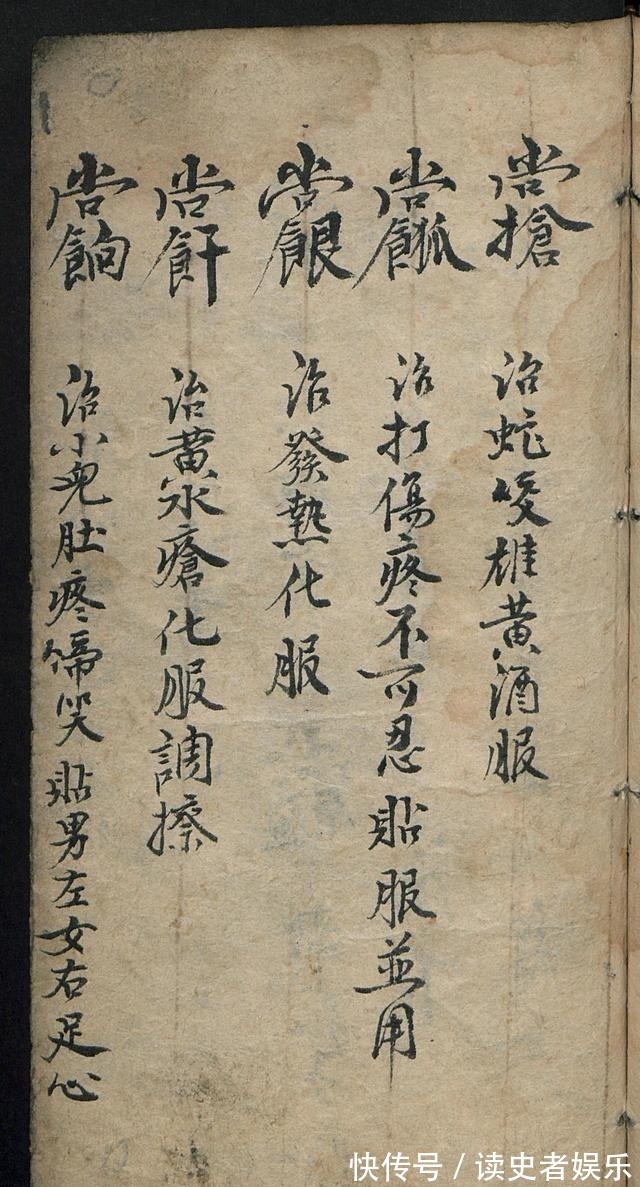 治蛇咬雄黄酒服
治打傷疼不可忍貼服並用
治發熱化服
治黄水瘡化服調搽
治小兒肚疼啼哭貼男左女右足心
快传号/读史者娱乐